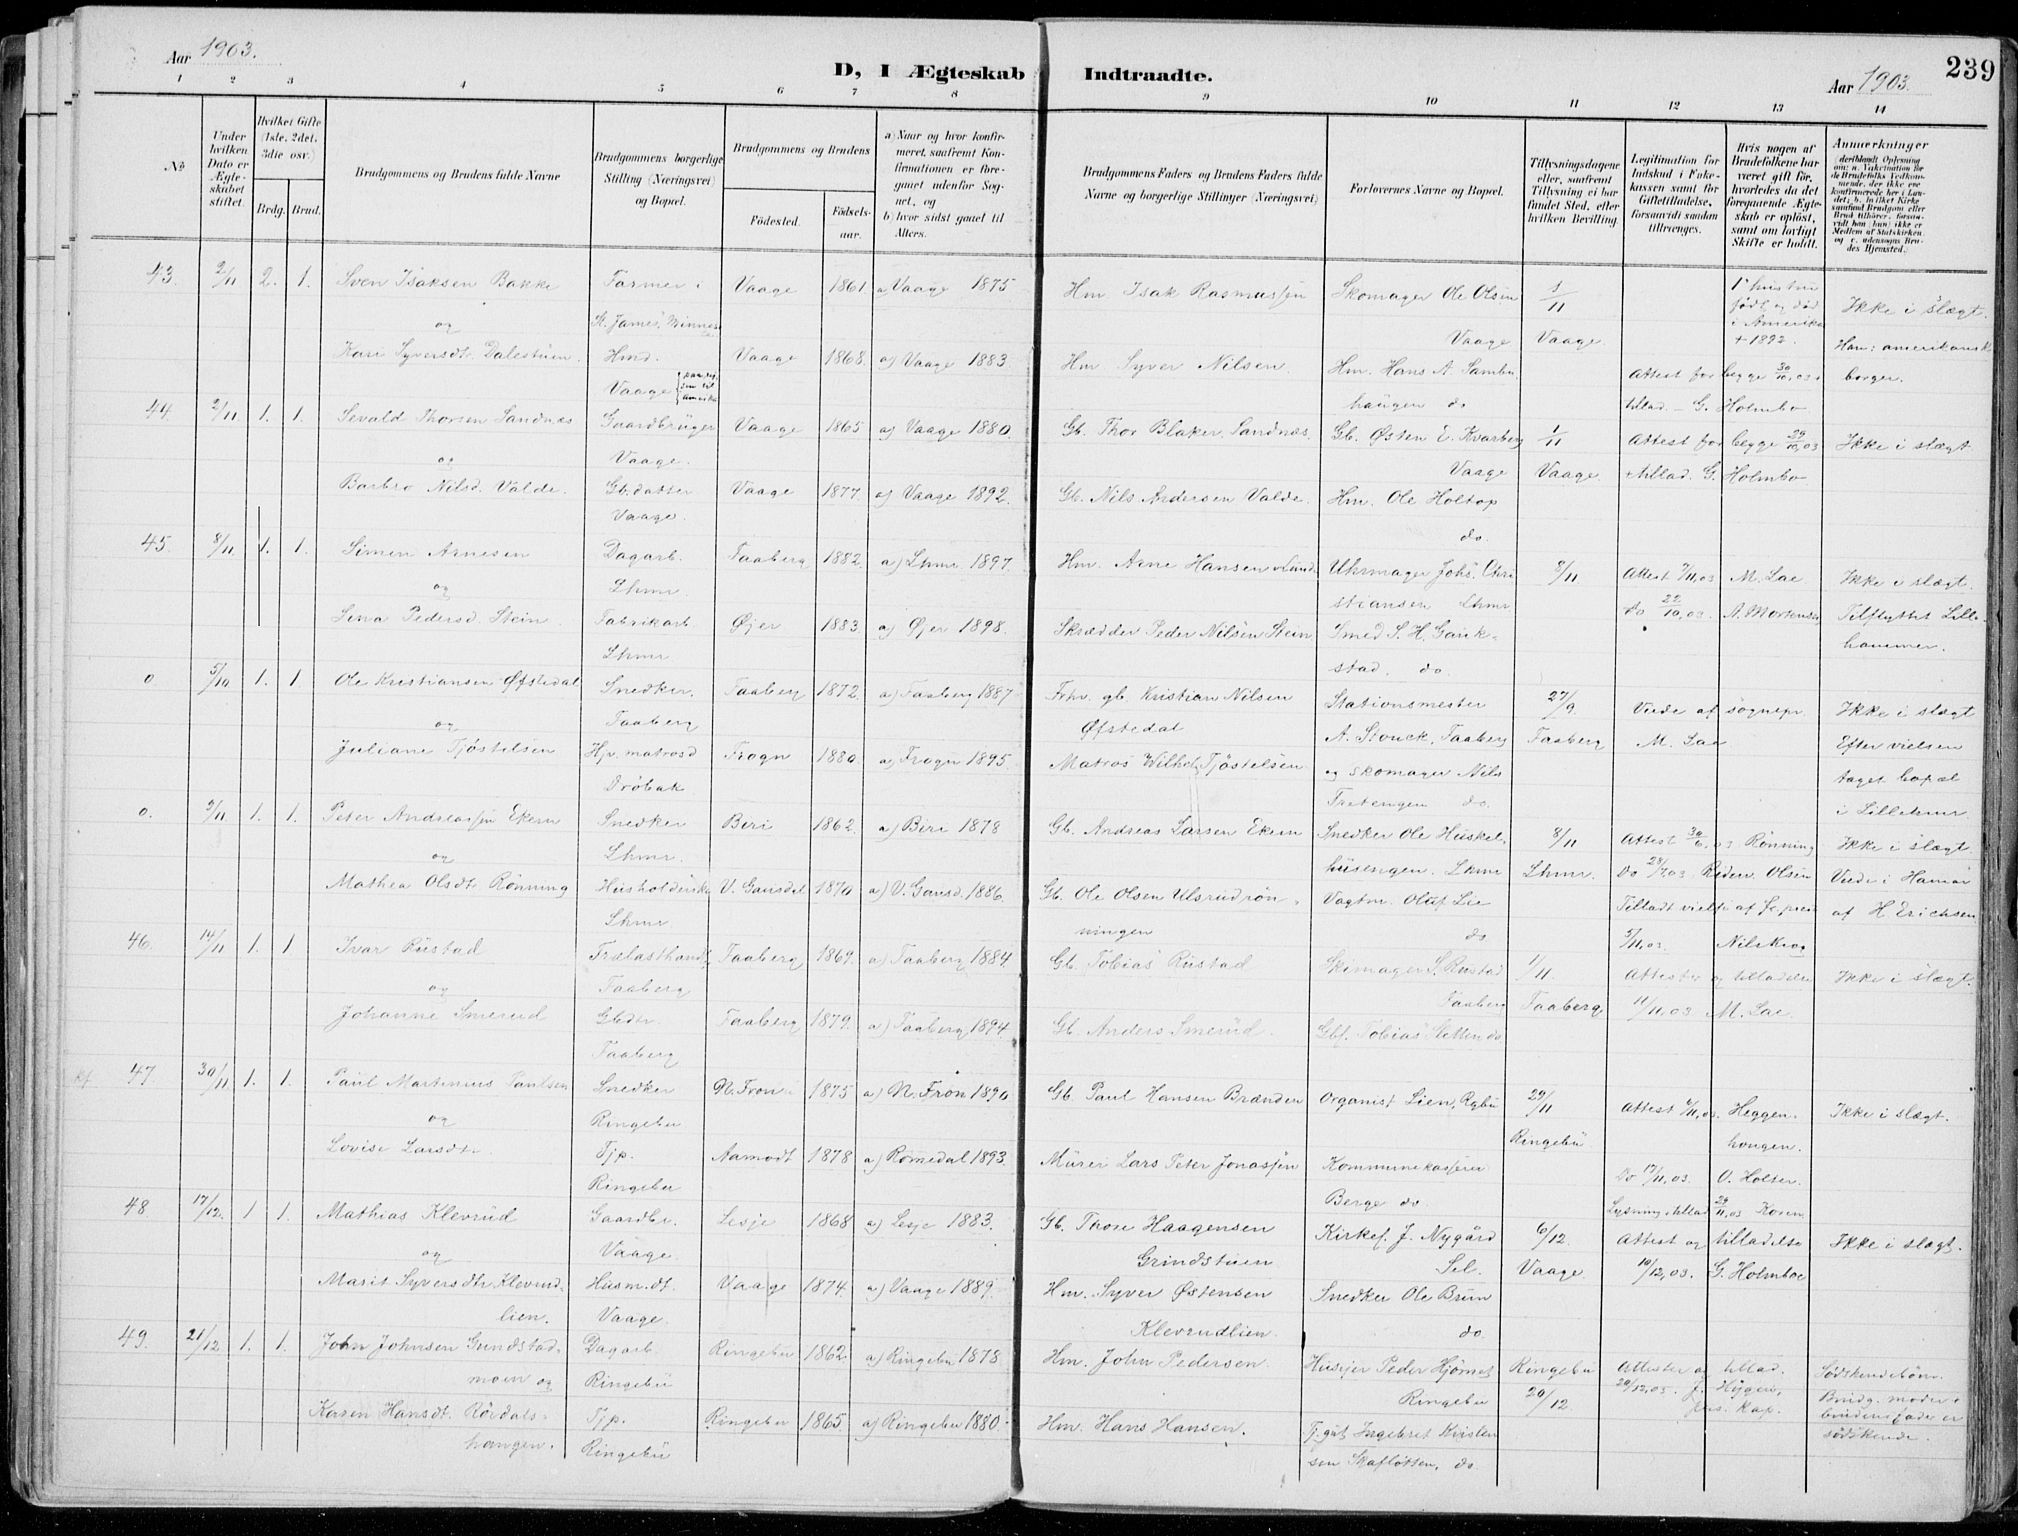 Aar 1903.
D, I Ægteskab Indtraadte.
Aar 1903.
239
1 2 3 4 5 6 7 8 9 10 11 12 13 14
No
Under hvilken Dato er Ægteskabet stiftet.
Hvilket Gifte (1ste, 2det, 3die osv.)
Brdg. Brud.
Brudgommens og Brudens fulde Navne
Brudgommens borgerlige Stilling (Næringsvei) og Bopæl.
Brudgommens og Brudens
Födested.
Födsels-aar.
a) Naar og hvor konfirmeret, saafremt Konfirmationen er foregaaet udenfor Sognet, og
b) hvor sidst gaaet til Alters.
Brudgommens Faders og Brudens Faders fulde Navne og borgerlige Stillinger (Næringsvei)
Forlovernes Navne og Bopæl.
Tillysningsdagene eller, saafremt Tillysning ei har fundet Sted, efter hvilken Bevilling.
Legitimation for Indskud i Fakekassen samt for Giftetilladelse, forsaavidt saadan tiltrænges.
Hvis nogen af Brudefolkene har været gift før, hvorledes da det foregaaende Ægteskab er oplöst, samt om lovligt Skifte er holdt.
Anmærkninger
43. 2/11 2. 1. Sven Isaksen Bakke Farmer Vaage 1861. a) Vaage 1875 Hm Isak Rasmussen Skomager Ole Olsen 1/11 1ste hustru Ikke i slægt.
og St. James, Minnes. Vaage Vaage født og død i Amerika + 1892.
Kari Syversdt. Dalestuen. Hmd. Vaage 1868. a) Vaage 1883. Hm Syver Nilsen. Hm. Hans A. Sambu- Attest for begge 30/10.03 Han: amerikansk
Vaage haugen do tillad. - G. Holmbo borger.
44. 2/11 1. 1. Sevald Thorsen Sandnæs Gaardbruger Vaage 1865 a) Vaage 1880. Gb. Thor Blaker Sandnæs. Gb. Østen E. Kvarberg 1/11 Attest for begge 29/10.03 Ikke i slægt
og Vaage. Vaage Vaage. + tillad. G. Holmbo
Barbro Nilsd. Valde. Gb.datter Vaage 1877. a) Vaage 1892. Gb. Nils Andersen Valde. Hm. Ole Holtop
Vaage. do.
45. 8/11 1. 1. Simen Arnesen Dagarb. Faaberg 1882. a) Lhmr 1897. Hm. Arne Hansen Lund. Uhrmager Johs. Chri 8/11 Attest 7/11.03 M. Lae Ikke i slægt.
og Lhmr. stiansen Lhmr
Lina Pedersd. Stein Fabrikarb. Øjer 1883. a) Øjer 1898. Skrædder Peder Nilsen Stein Smed S. H. Garik- Do 22/10.03. A. Mortensen Tilflyttet Lille-
Lhmr stad. do. hammer.
0 5/10 1. 1 Ole Kristiansen Øfstedal Snedker. Faaberg 1872. a) Faaberg 1887 Fhv. gb. Kristian Nilsen Stationsmester 27/9. Viede af sognepr. Ikke i slægt
og Faaberg Øfstedal A. Storck, Faaberg Faaberg M. Lae Efter vielsen
Juliane Tjøstelsen Hjv. matrosd Frogn 1880. a) Frogn 1895. Matros Wilh. Tjøstelsen og skomager Nils taget bopæl
Drøbak Tretengen do. i Lillehmr.
0. 9/11 1. 1. Peter Andreassen Ekern Snedker Biri 1862. a) Biri 1878 Gb. Andreas Larsen Ekern Snedker Ole Huskel- 8/11 Attest 30/6.03 Rønning Ikke i slægt.
og Lhmr. husengen. Lhmr Lhmr. Do 28/7.03. Olsen Viede i Hamar
Mathea Olsdt. Rønning Husholderske V. Gausdal 1870 a) V. Gausd. 1886. Gb. Ole Olsen Ulsrudrøn- Vagtm. Oluf Lie Tilladt vielse af af H. Erichsen
Lhmr ningen do 5/11.03. Nilskog
46. 14/11 1. 1 Ivar Rustad Trælasthandl. Faaberg 1869. a) Faaberg 1884. Gb. Tobias Rustad Skimager S. Rustad 1/11. Attester og tilladelse Ikke i slægt.
og Faaberg Faaberg Faaberg
Johanne Smerud Gbdtr. Faaberg 1879. a) Faaberg 1894 Gb. Anders Smerud. Gbf. Tobias Sletten do 11/11.03 M. Lae.
Faaberg
47. 30/11 1. 1. Paul Martinius Paulsen Snedker N. Fron 1875 a) N. Fron 1890 Gb. Paul Hansen Brænden Organist Lien, Rgbu 29/11 Attest 6/11.03 Heggen- Ikke i slægt.
og Ringebu Ringebu hougen.
Lovise Larsdtr. Tjp. Aamodt 1878 a) Romedal 1893. Murer Lars Peter Jonassen Kommunekasserer Do 17/11.03. O. Holter.
Ringebu Berge do. Lysning tillad 29/11.03 Rosen
48. 17/12. 1 1. Mathias Klevrud Gaardbr. Lesje 1868 a) Lesje 1883. Gb. Thore Haagensen Kirkef. J. Nygård 6/12. Attest og tilladelse Ikke i slægt.
og Vaage. Grindstuen Sel. Vaage. 10/12.03. G. Holmboe
Marit Syversdtr. Klevrud- Husm.dt. Vaage 1874. a) Vaage 1889. Hm. Syver Østensen Snedker Ole Brun
lien. Vaage. Klevrudlien. do.
49. 21/12 1. 1. John Johnsen Gundstad- Dagarb. Ringebu 1862. a) Ringebu 1878 Hm. John Pedersen. Husejer Peder Hjørnet Ringebu Attester og tillad. Sødskendebørn.
moen og Ringebu Ringebu 20/12 20/12.03. Brudg. moder &
Karen Hansdt. Rövdals- Tjp. Ringebu 1865. a) Ringebu 1880. Hm. Hans Hansen. Tj.gut Ingebret Kristen pers. kap. brudens fader er
haugen. Ringebu sen Skafløtten, do. sødskende.